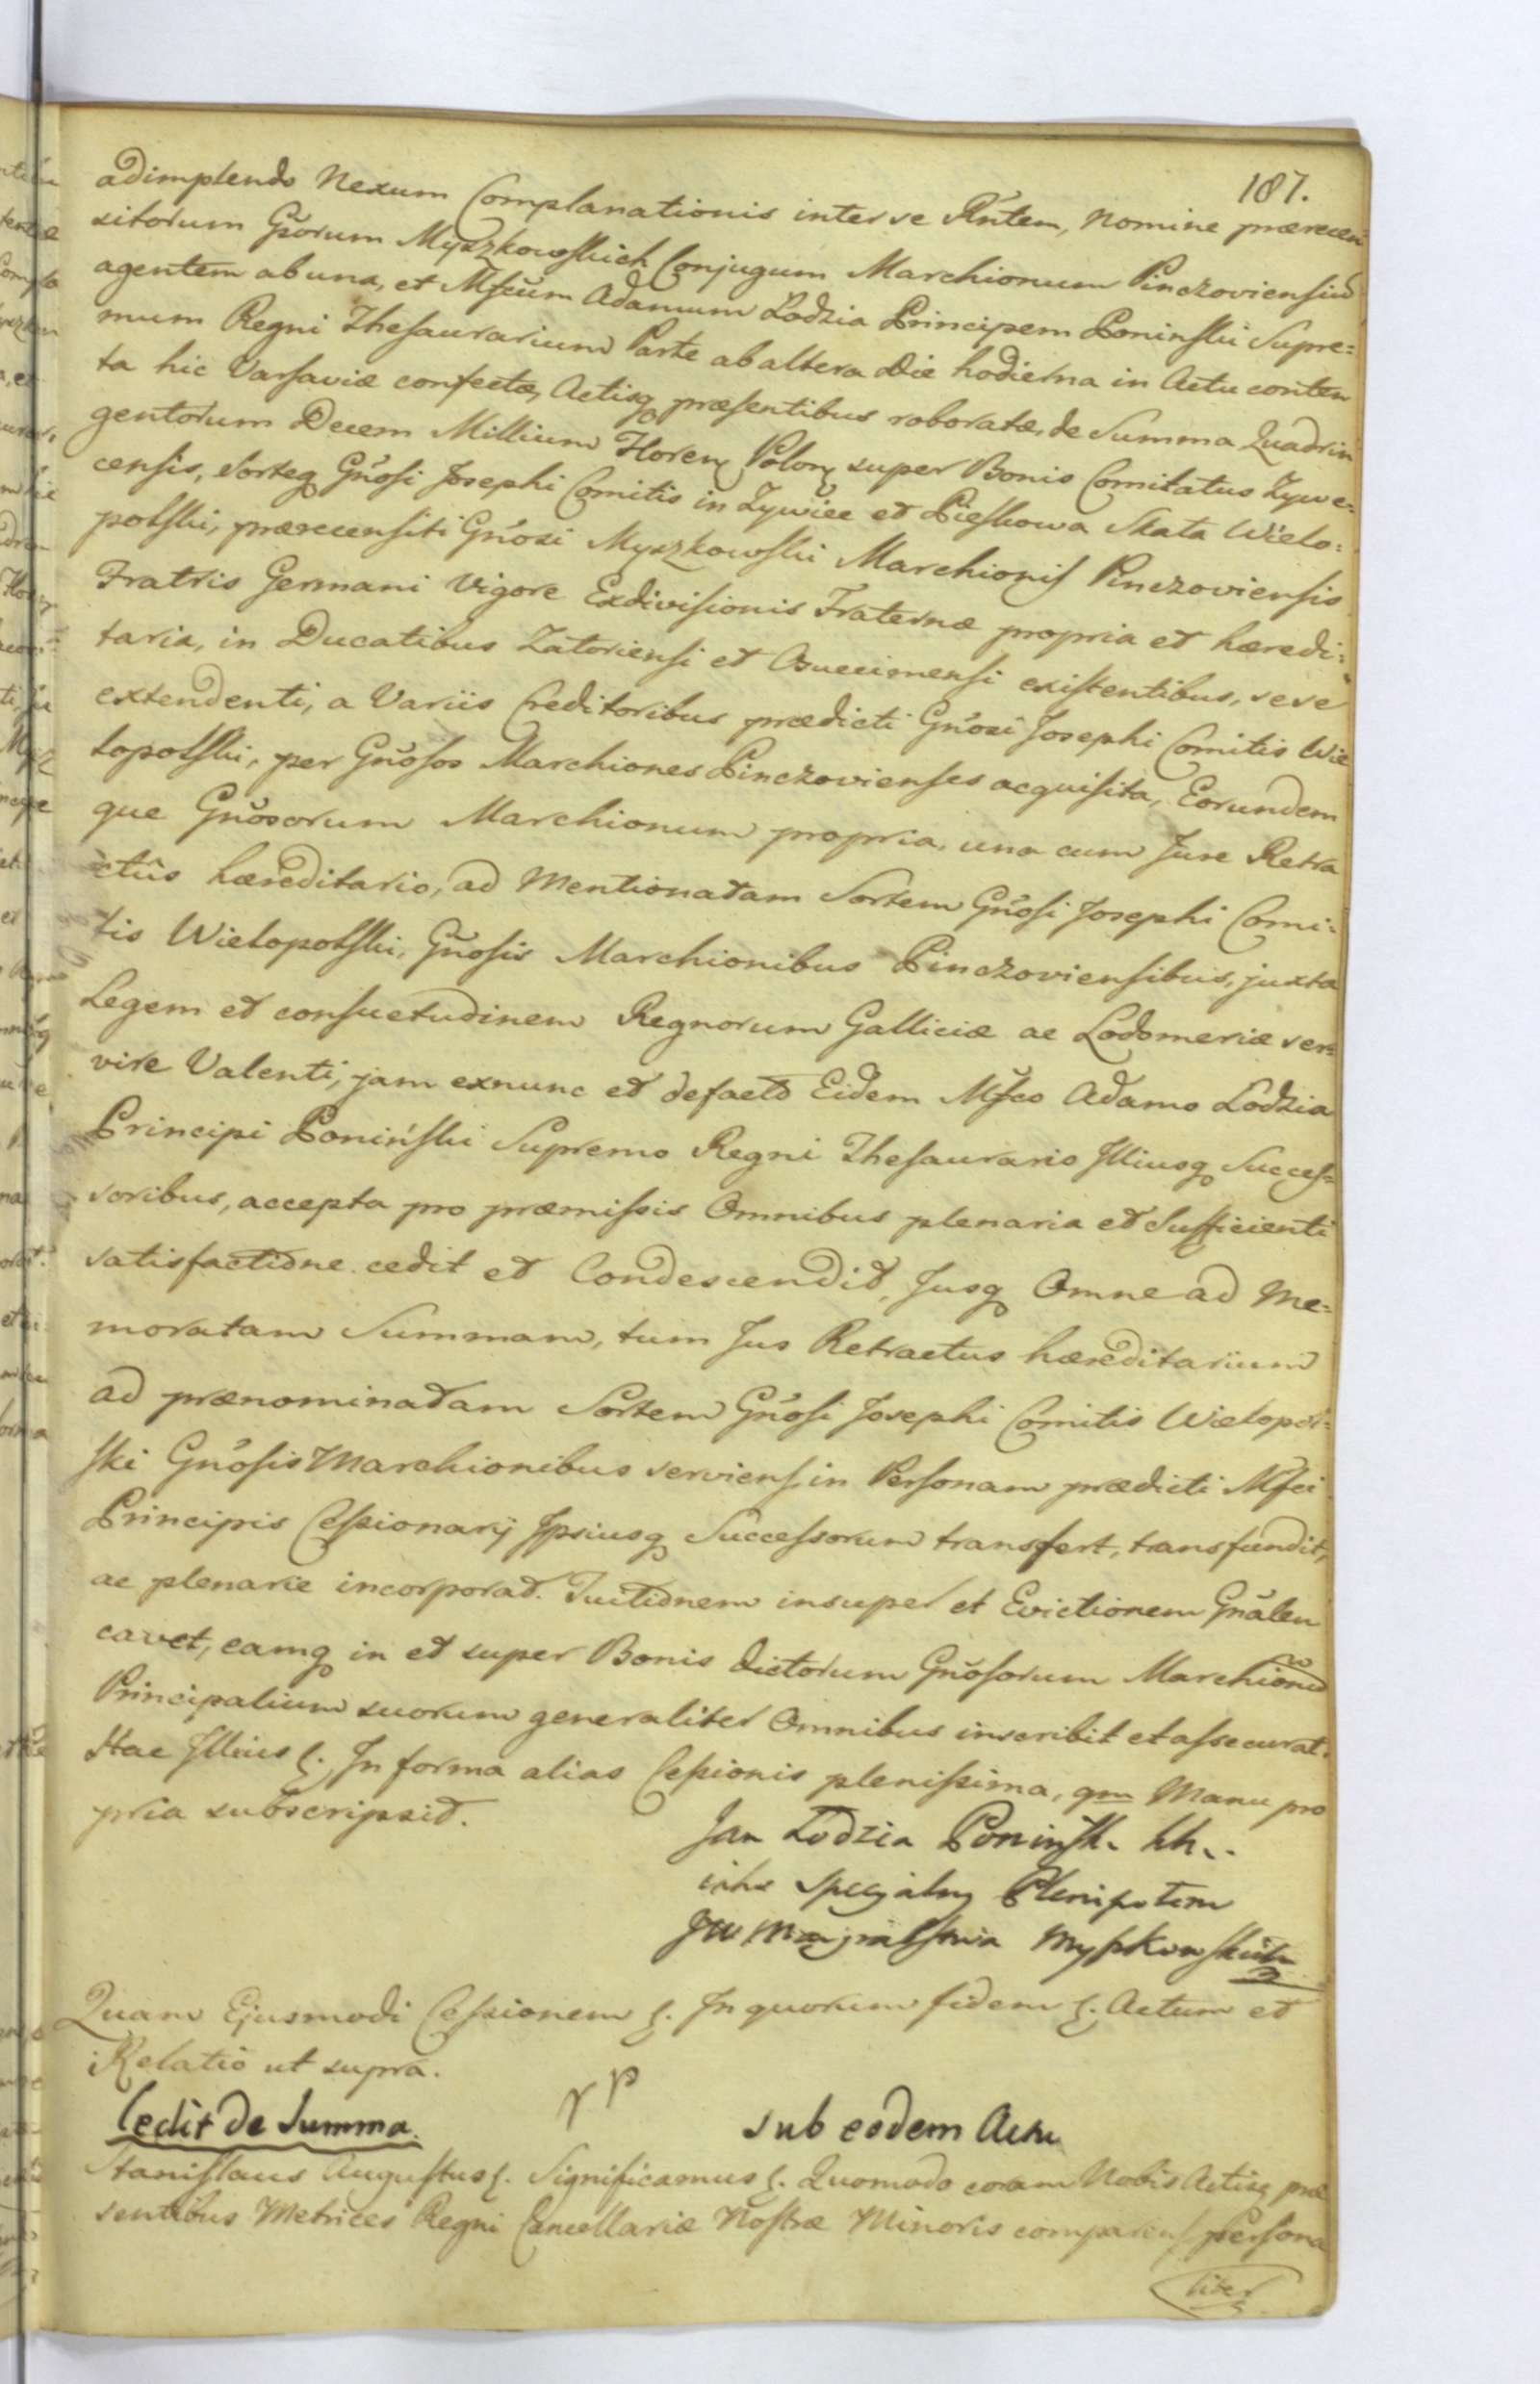 187.
adimplendo Nexum Complanationis inter se Rntem, Nomine prærecen
sitorum Gsorum Myszkowskich Conjugum Marchionum Pinczoviensium
agentem ab una, et Mfcum Adamum Łodzia Principem Poninski Supre=
mum Regni Thesaurarium Parte ab altera Die hodierna in Actu conten
ta hic Varsaviæ confectæ, Actisq præsentibus roboratæ, de Summa Quadrin
gentorum Decem Millium Floren Polon super Bonis Comitatus Zywe=
censis, Sorteq Gnosi Josephi Comitis in Zywiec et Pieskowa Skała Wielo=
polski, prærecensiti Gnosi Myszkowski Marchionis Pinczoviensis
Fratris Germani Vigore Exdivisionis Fraternæ propria et hæredi=
taria, in Ducatibus Zatoriensi et Osuecimensi existentibus, sese
extendenti, a Variis Creditoribus prædicti Gnosi Josephi Comitis Wie
lopolski, per Gnosos Marchiones Pinczovienses acquisita, Eorundem
que Gnosorum Marchionum propria, una cum Jure Retra
ctûs hæreditario, ad Mentionatam Sortem Gnosi Josephi Comi=
tis Wielopolski, Gnosis Marchionibus Pinczoviensibus, juxta
Legem et consuetudinem Regnorum Galliciæ ac Lodomeriæ ser=
vire Valenti, jam exnunc et defacto Eidem Mfco Adamo Łodzia
Principi Poniński Supremo Regni Thesaurario Illiusq Succes=
soribus, accepta pro præmissis Omnibus plenaria et Sufficienti
satisfactione cedit et Condescendit, Jusq Omne ad Me=
moratam Summam, tum Jus Retractus hæreditarium
ad prænominatam Sortem Gnosi Josephi Comitis Wielopol=
ski Gnosis Marchionibus serviens, in Personam prædicti Mfci
Principis Cessionarij Ipsiusq Successorum transfert, transfundit,
ac plenarie incorporat. Tuitionem insuper et Evictionem Gnalem
cavet, eamq in et super Bonis dictorum Gnosorum Marchionum
Principalium suorum generaliter Omnibus inscribit et assecurat.
Hac Illius ∫. In forma alias Cessionis plenissima, qm Manu pro
pria subscripsit.
Jan Łodzia Ponińsk.
iako specjalny Plenipotent
JW Myszkowskich
Quam Ejusmodi Cessionem ∫. In quorum fidem ∫. Actum et
Relatio ut supra.
Cedit de Summa. sub eodem Actu
Stanislaus Augustus ∫. Significamus ∫. Quomodo coram Nobis Actisq præ
sentibus Metrices Regni Cancellariæ Nostræ Minoris comparens persona
liter